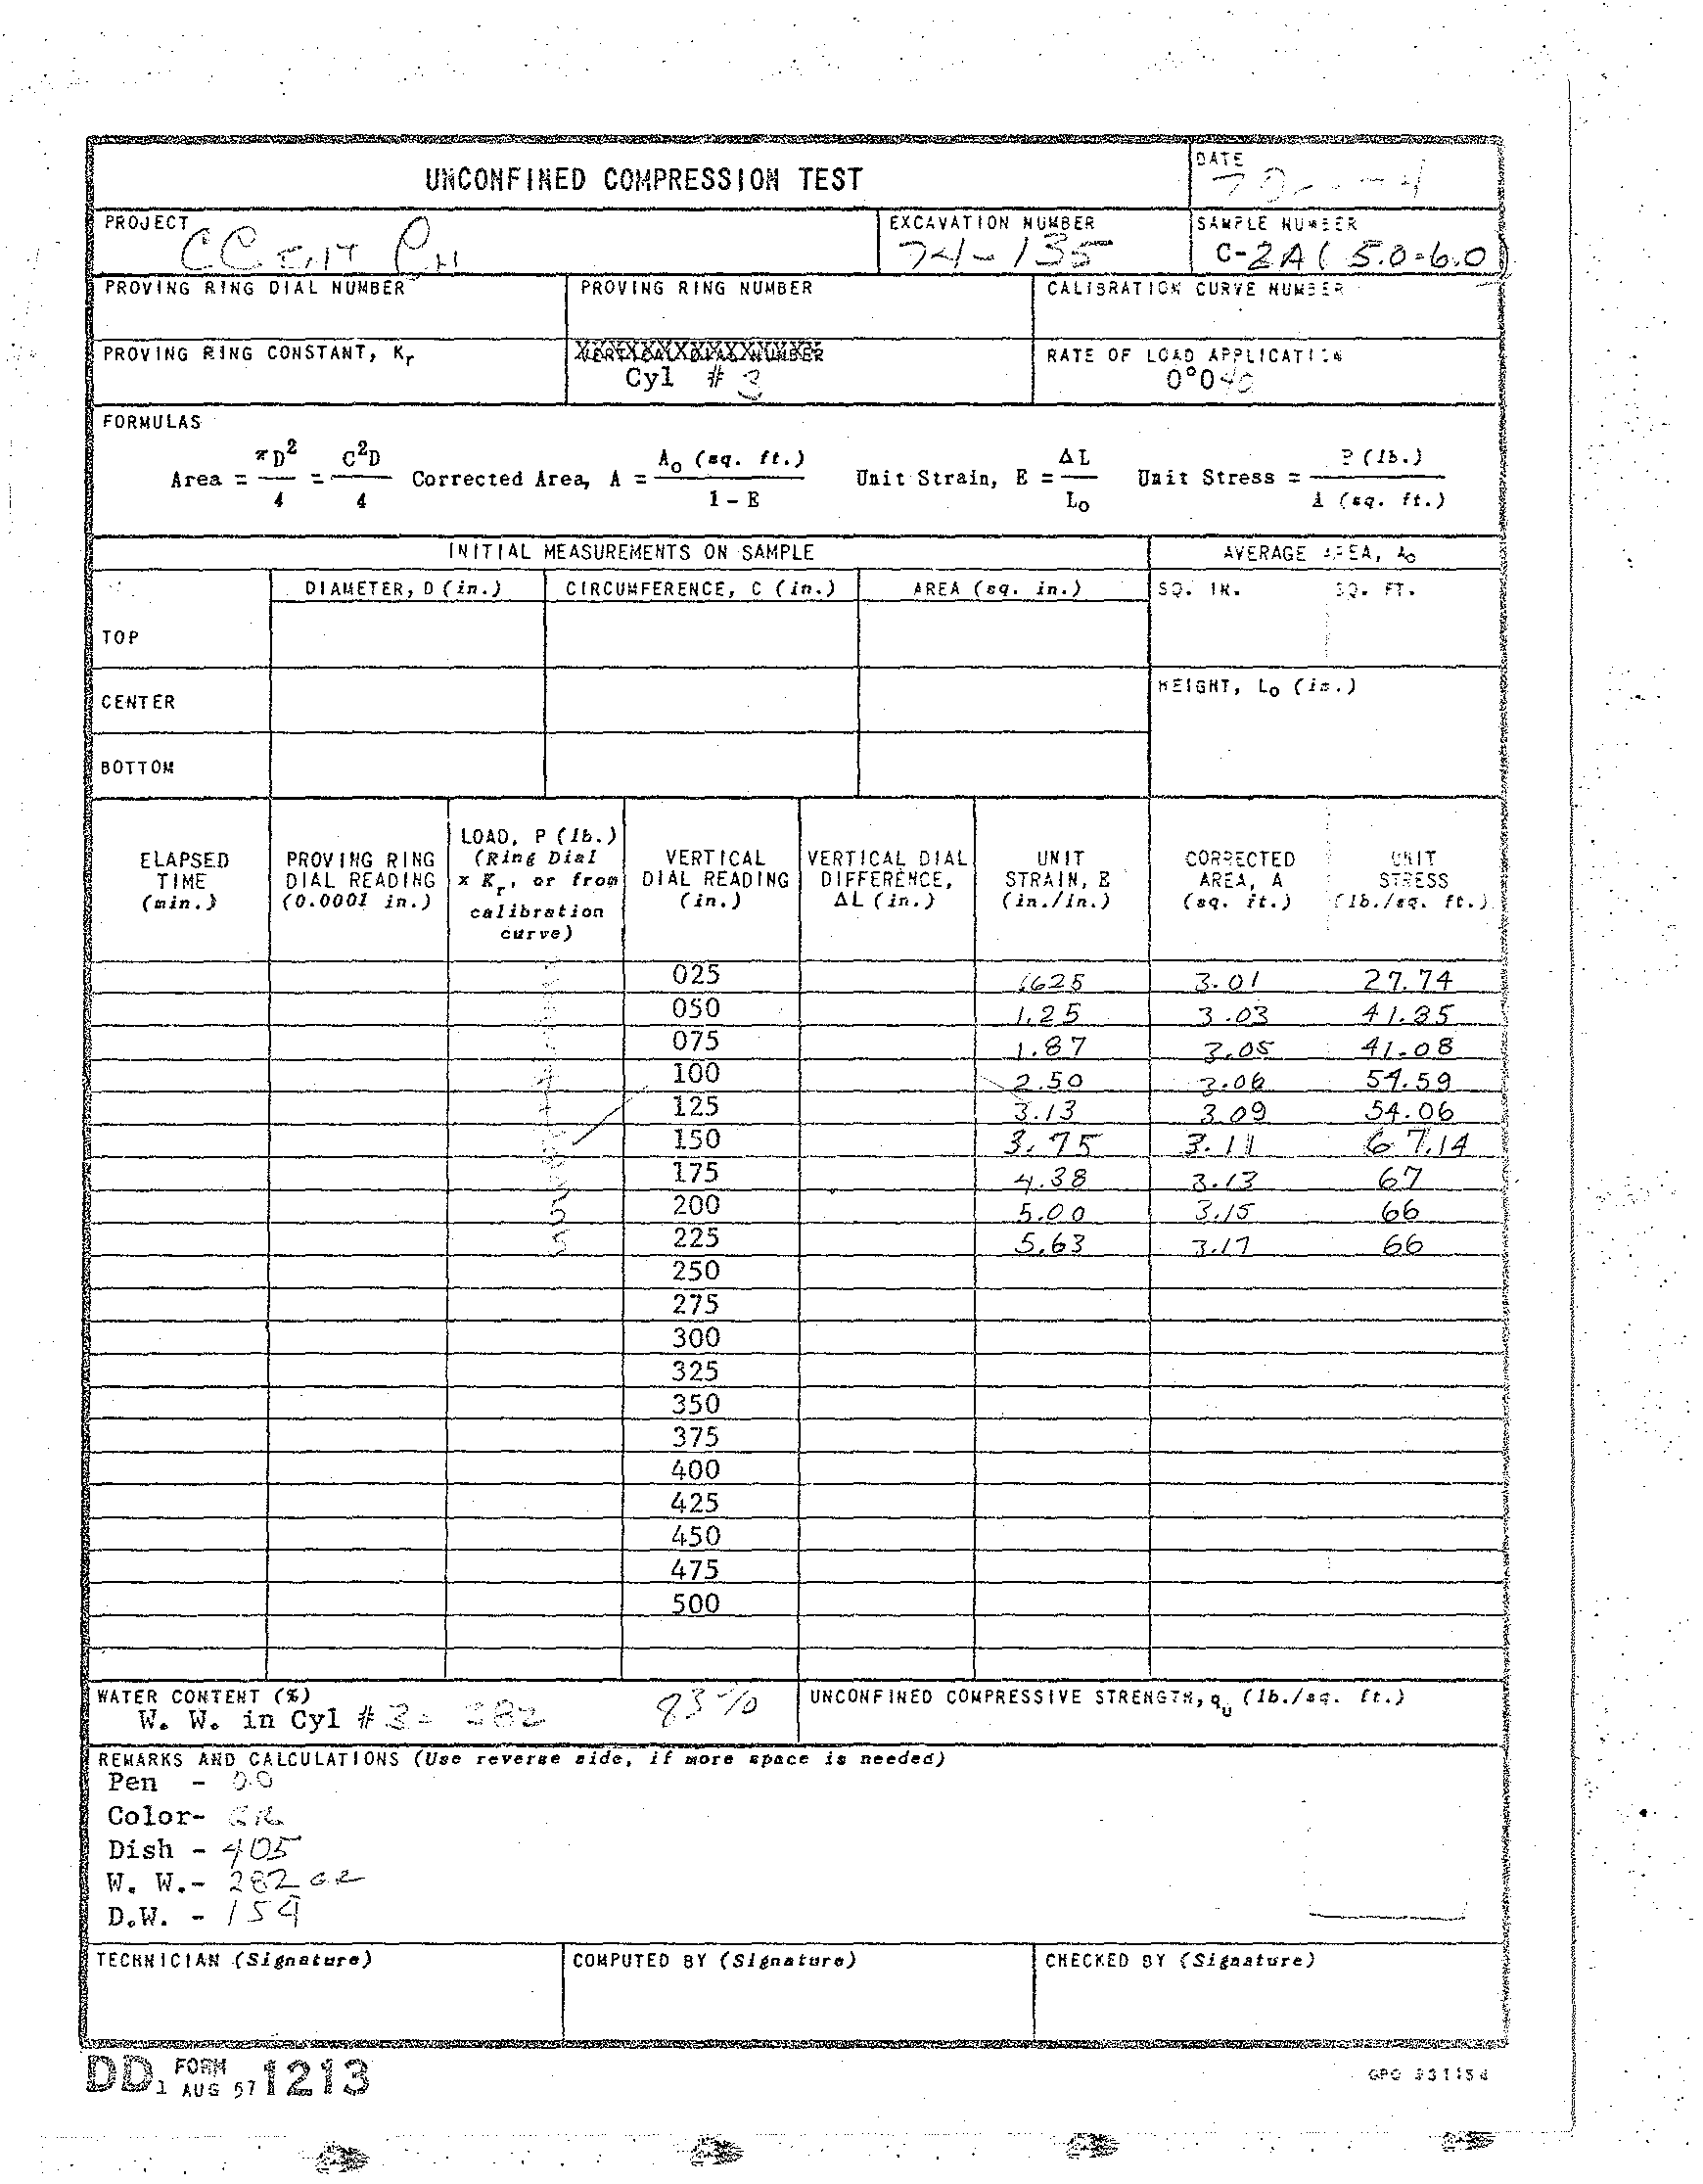 UNCONFINED COMPRESSION TEST
DATE
PROJECT
EXCAVATION NUMBER
74-135
SAMPLE NUMBER
C-2A (5.0-6.0)
PROVING RING DIAL NUMBER
PROVING RING NUMBER
CALIBRATION CURVE NUMBER
PROVING RING CONSTANT, Kr
Cyl # 3
RATE OF LOAD APPLICATION
FORMULAS
Area = πD²/4 = C²D/4 Corrected Area, A = Ao (sq. ft.)/1-E Unit Strain, E = ΔL/Lo Unit Stress = P (lb.)/A (sq. ft.)
INITIAL MEASUREMENTS ON SAMPLE
AVERAGE AREA, Ao
DIAMETER, D (in.) CIRCUMFERENCE, C (in.) AREA (sq. in.) SQ. IN. SQ. FT.
TOP
CENTER
HEIGHT, Lo (in.)
BOTTOM
ELAPSED TIME (min.)
PROVING RING DIAL READING (0.0001 in.)
LOAD, P (lb.) (Ring Dial x Kr, or from calibration curve)
VERTICAL DIAL READING (in.)
VERTICAL DIAL DIFFERENCE, ΔL (in.)
UNIT STRAIN, E (in./in.)
CORRECTED AREA, A (sq. ft.)
UNIT STRESS (lb./sq. ft.)
025 .625 3.01 27.74
050 1.25 3.03 41.35
075 1.87 3.05 41.08
100 2.50 3.06 54.59
125 3.13 3.09 54.06
150 3.75 3.11 67.14
175 4.38 3.13 67
5 200 5.00 3.15 66
5 225 5.63 3.17 66
250
275
300
325
350
375
400
425
450
475
500
WATER CONTENT (%)
W. W. in Cyl # 3 - 282 83%
UNCONFINED COMPRESSIVE STRENGTH, qu (lb./sq. ft.)
REMARKS AND CALCULATIONS (Use reverse side, if more space is needed)
Pen - 0.0
Color- GR
Dish - 405
W. W.- 282
D.W. - 154
TECHNICIAN (Signature)
COMPUTED BY (Signature)
CHECKED BY (Signature)
DD FORM 1 AUG 57 1213